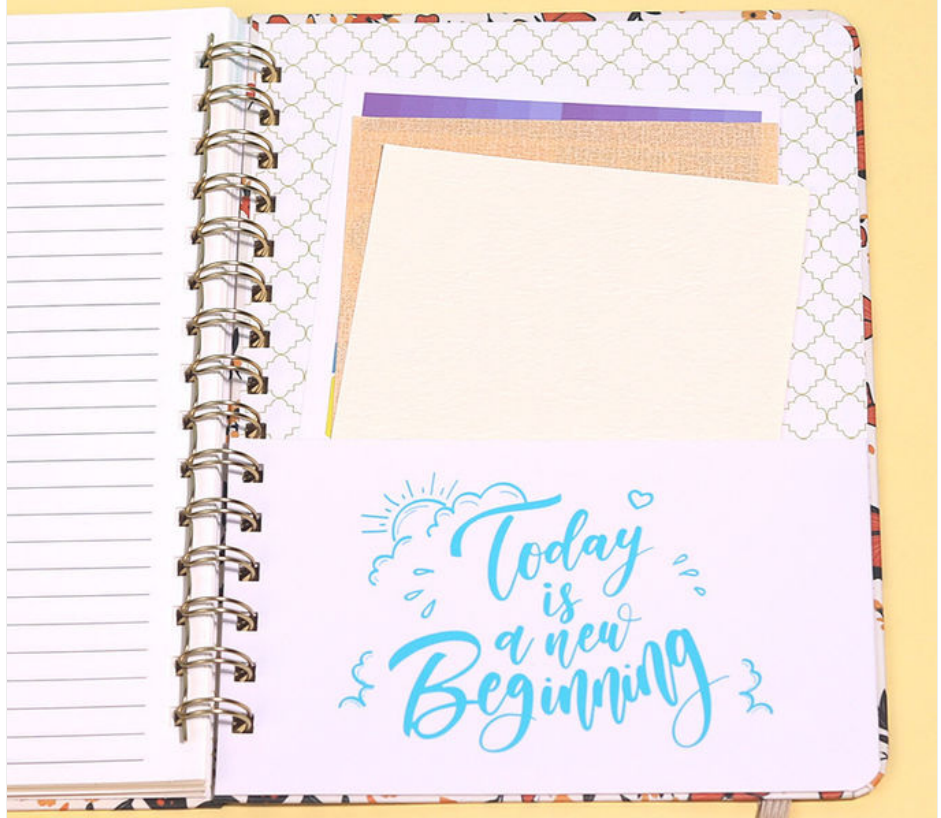 Today
is
a new
Beginning